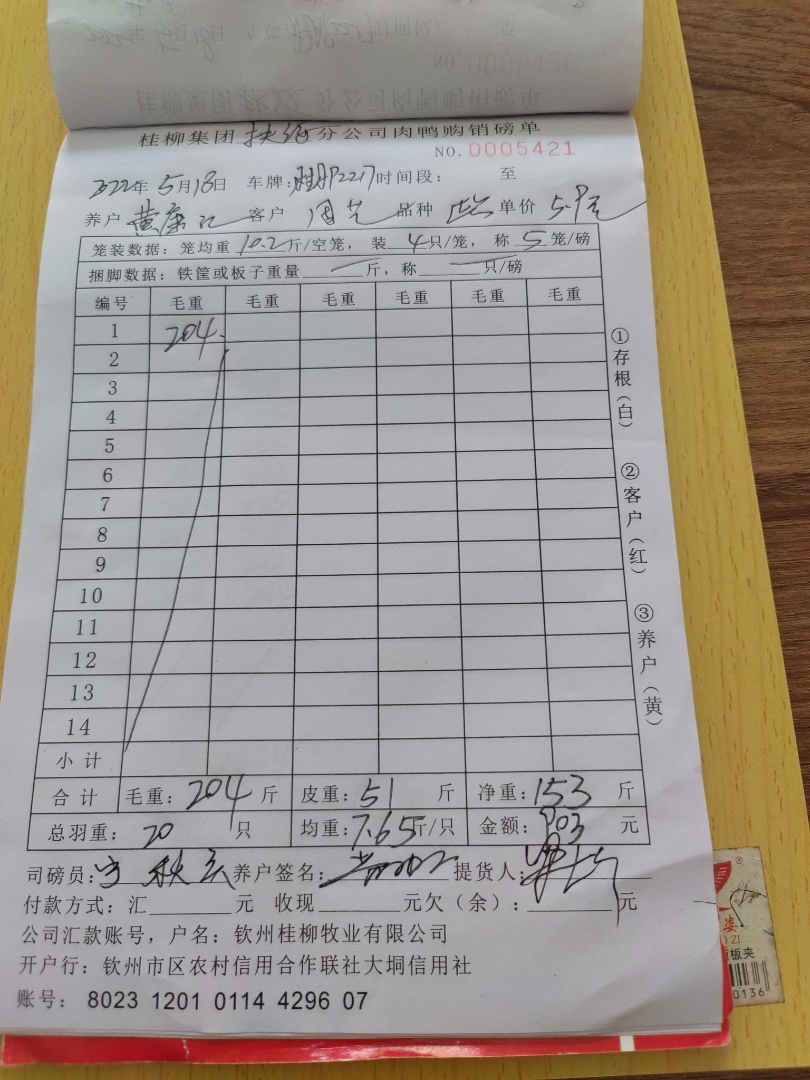 NO. 0005420
桂柳集团扶绥分公司肉鸭购销磅单
NO. 0005421
2022年5月18日 车牌: 2217时间段: 至
养户 黄康 客户 周 品种 单价 5.9元
笼装数据: 笼均重 10.2 斤/空笼, 装 4 只/笼, 称 5 笼/磅
捆脚数据: 铁筐或板子重量 — 斤, 称 — 只/磅
编号 毛重 毛重 毛重 毛重 毛重 毛重
1 204
2
3
4
5
6
7
8
9
10
11
12
13
14
小计
合计 毛重: 204 斤 皮重: 51 斤 净重: 153 斤
总羽重: 20 只 均重: 7.65斤/只 金额: 903 元
司磅员: 秋 养户签名: 提货人:
付款方式: 汇 元 收现 元欠(余): 元
公司汇款账号, 户名: 钦州桂柳牧业有限公司
开户行: 钦州市区农村信用合作联社大垌信用社
账号: 8023 1201 0114 4296 07
①存根(白)
②客户(红)
③养户(黄)
板夹
0136